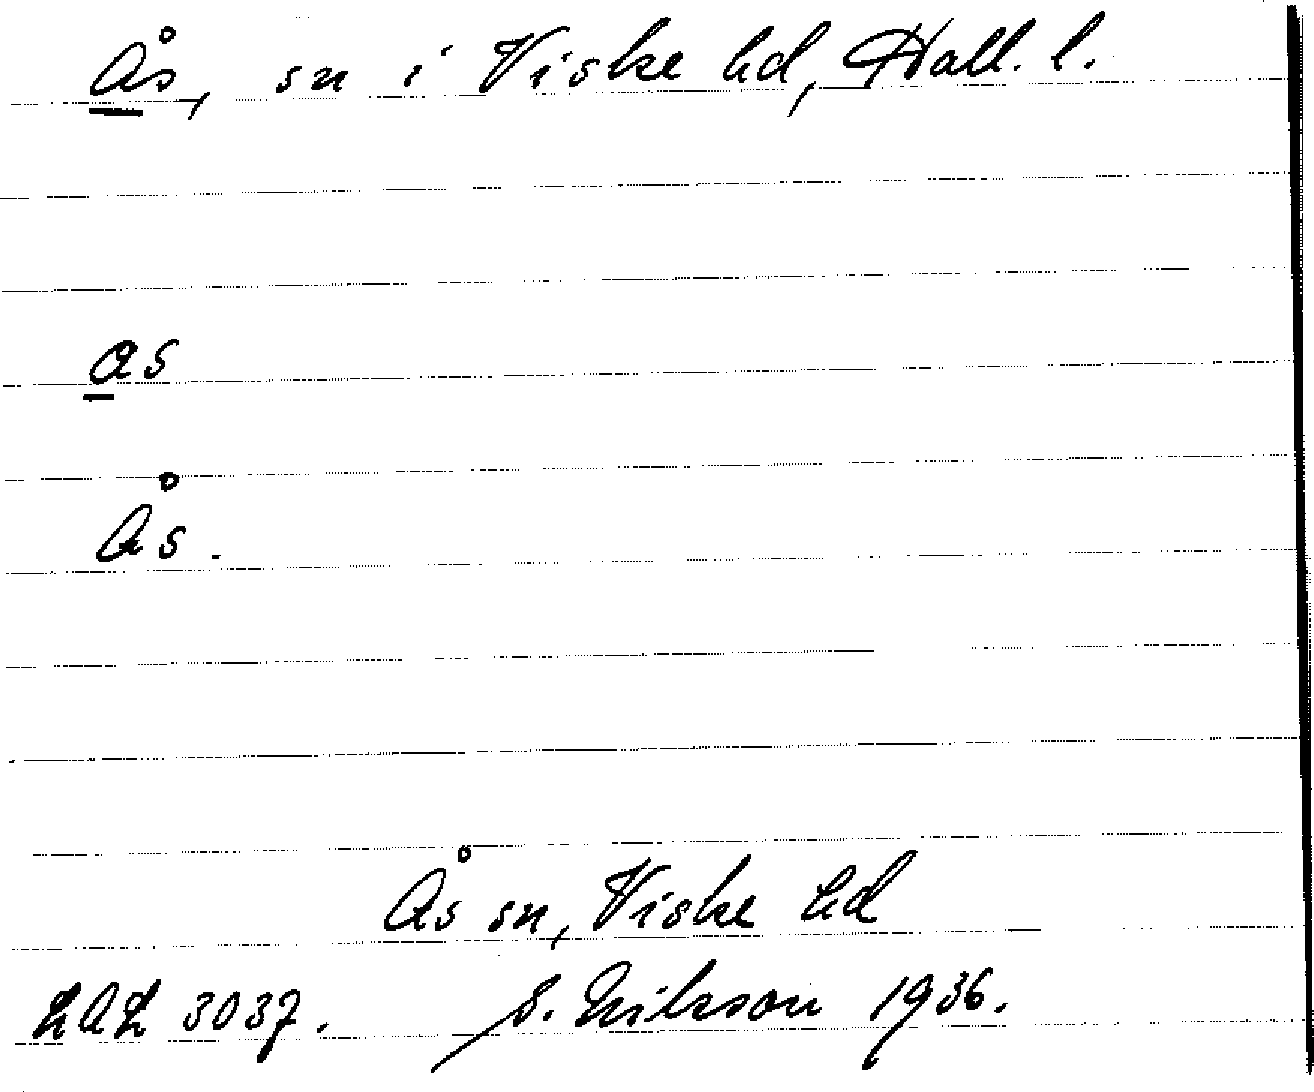 Ås, sn i Viske hd, Hall. l.
as
Ås.
Ås sn, Viske hd
LAL 3037. S. Nilsson 1936.